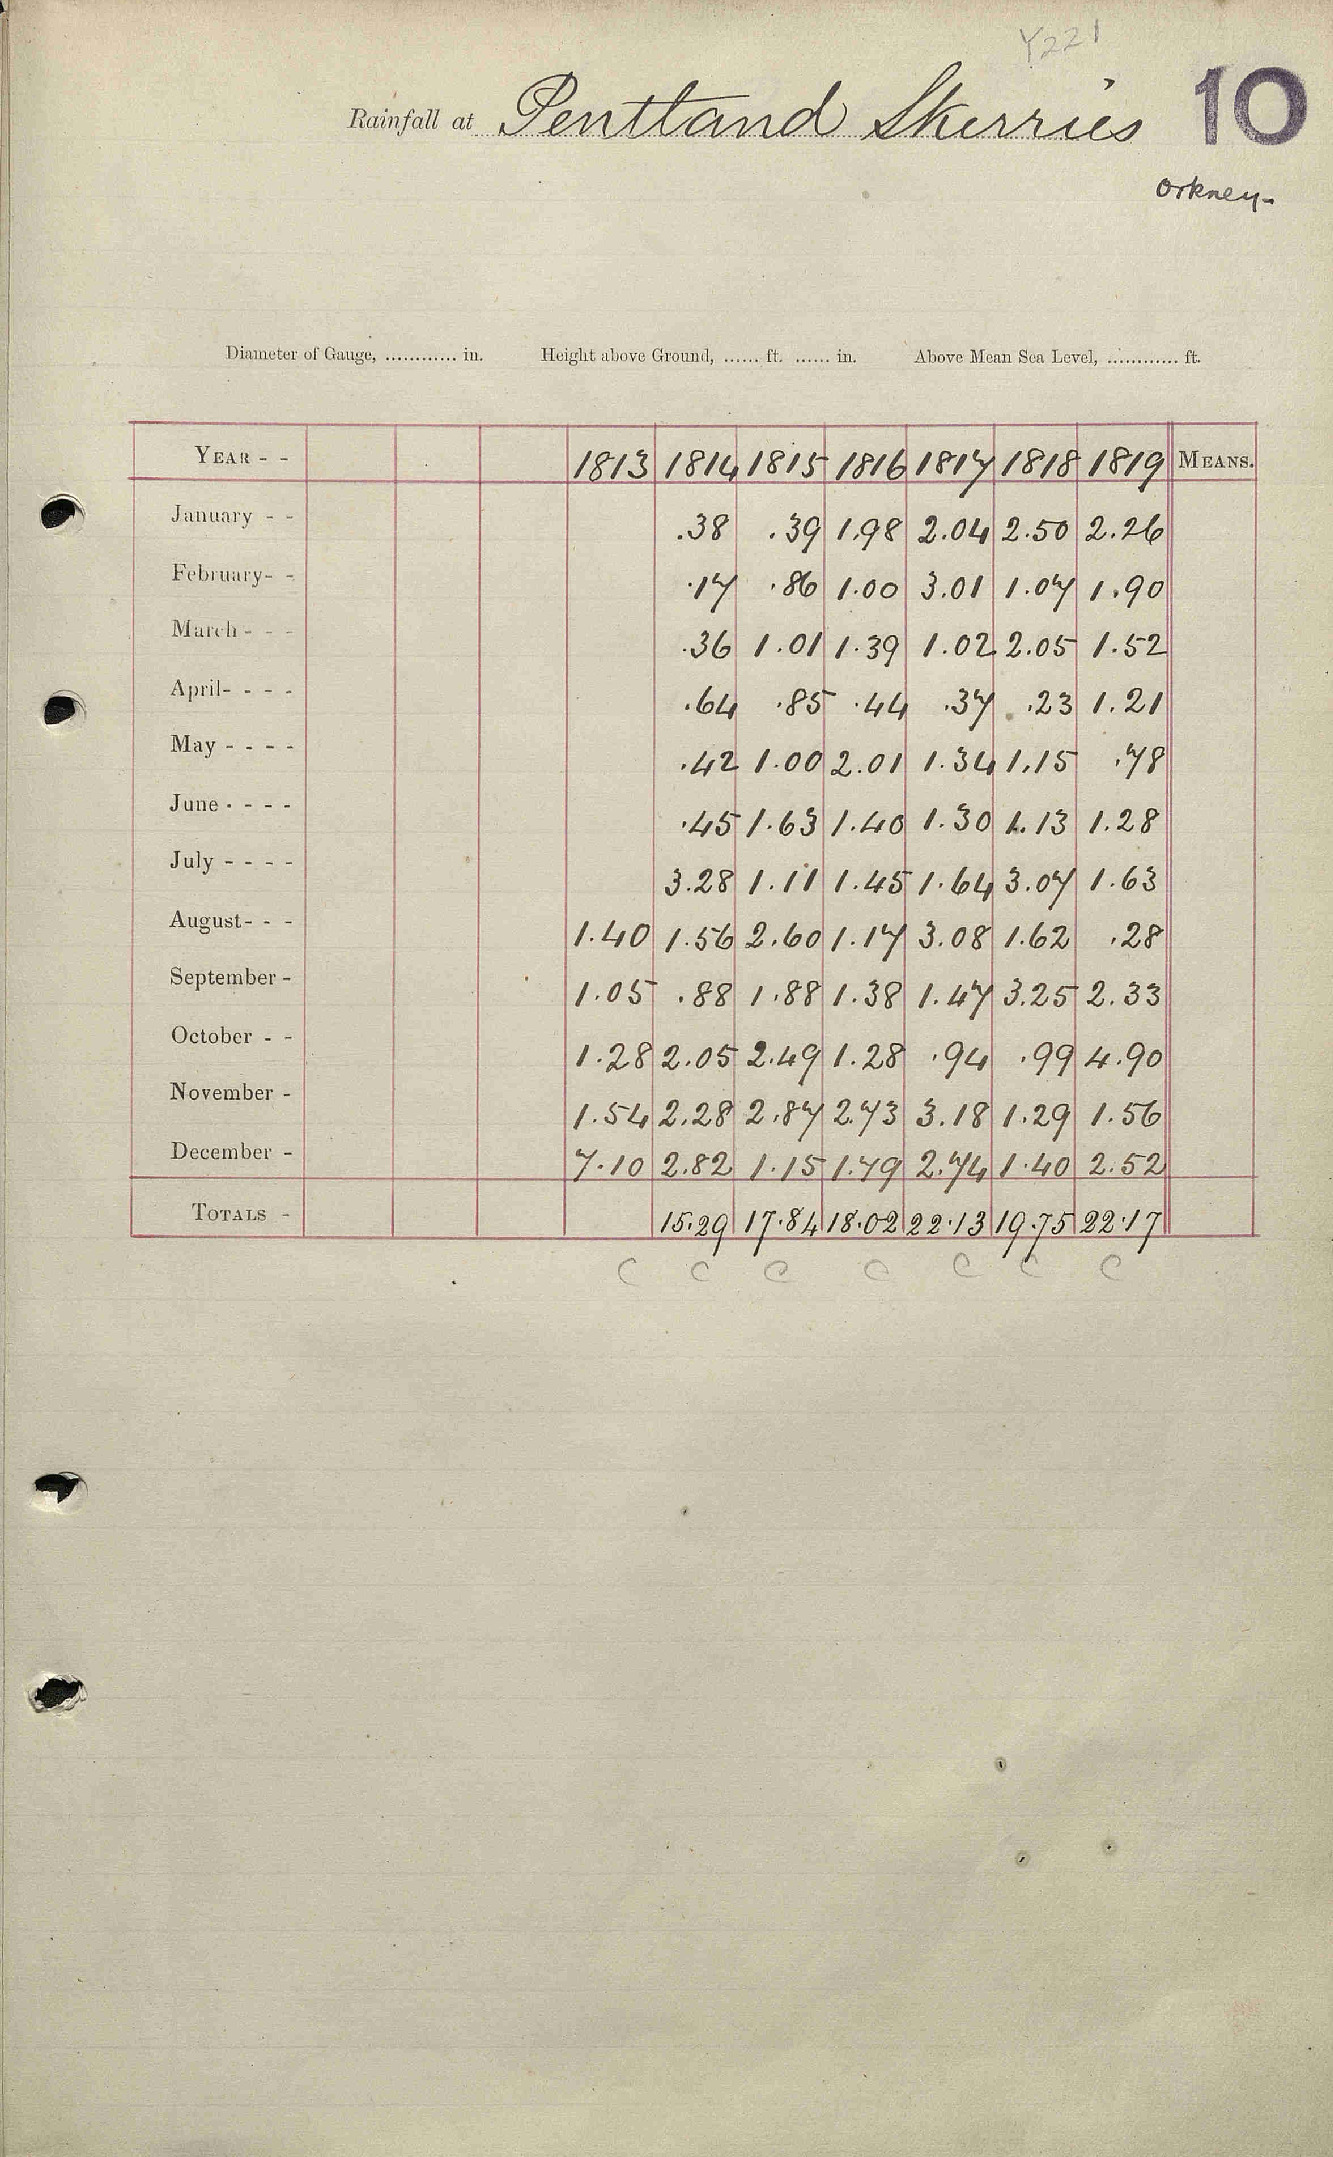 Y221
Rainfall at Pentland Skerries 10
Orkney-
Diameter of Gauge, ............ in. Height above Ground, ...... ft. ...... in. Above Mean Sea Level, ............ ft.
YEAR - - 1813 1814 1815 1816 1817 1818 1819 MEANS.
January - - .38 .39 1.98 2.04 2.50 2.26
February- - .17 .86 1.00 3.01 1.07 1.90
March - - - .36 1.01 1.39 1.02 2.05 1.52
April- - - - .64 .85 .44 .37 .23 1.21
May - - - - .42 1.00 2.01 1.34 1.15 .78
June - - - - .45 1.63 1.40 1.30 1.13 1.28
July - - - - 3.28 1.11 1.45 1.64 3.07 1.63
August- - - 1.40 1.56 2.60 1.17 3.08 1.62 .28
September - 1.05 .88 1.88 1.38 1.47 3.25 2.33
October - - 1.28 2.05 2.49 1.28 .94 .99 4.90
November - 1.54 2.28 2.87 2.73 3.18 1.29 1.56
December - 7.10 2.82 1.15 1.79 2.74 1.40 2.52
TOTALS - 15.29 17.84 18.02 22.13 19.75 22.17
C C C C C C C